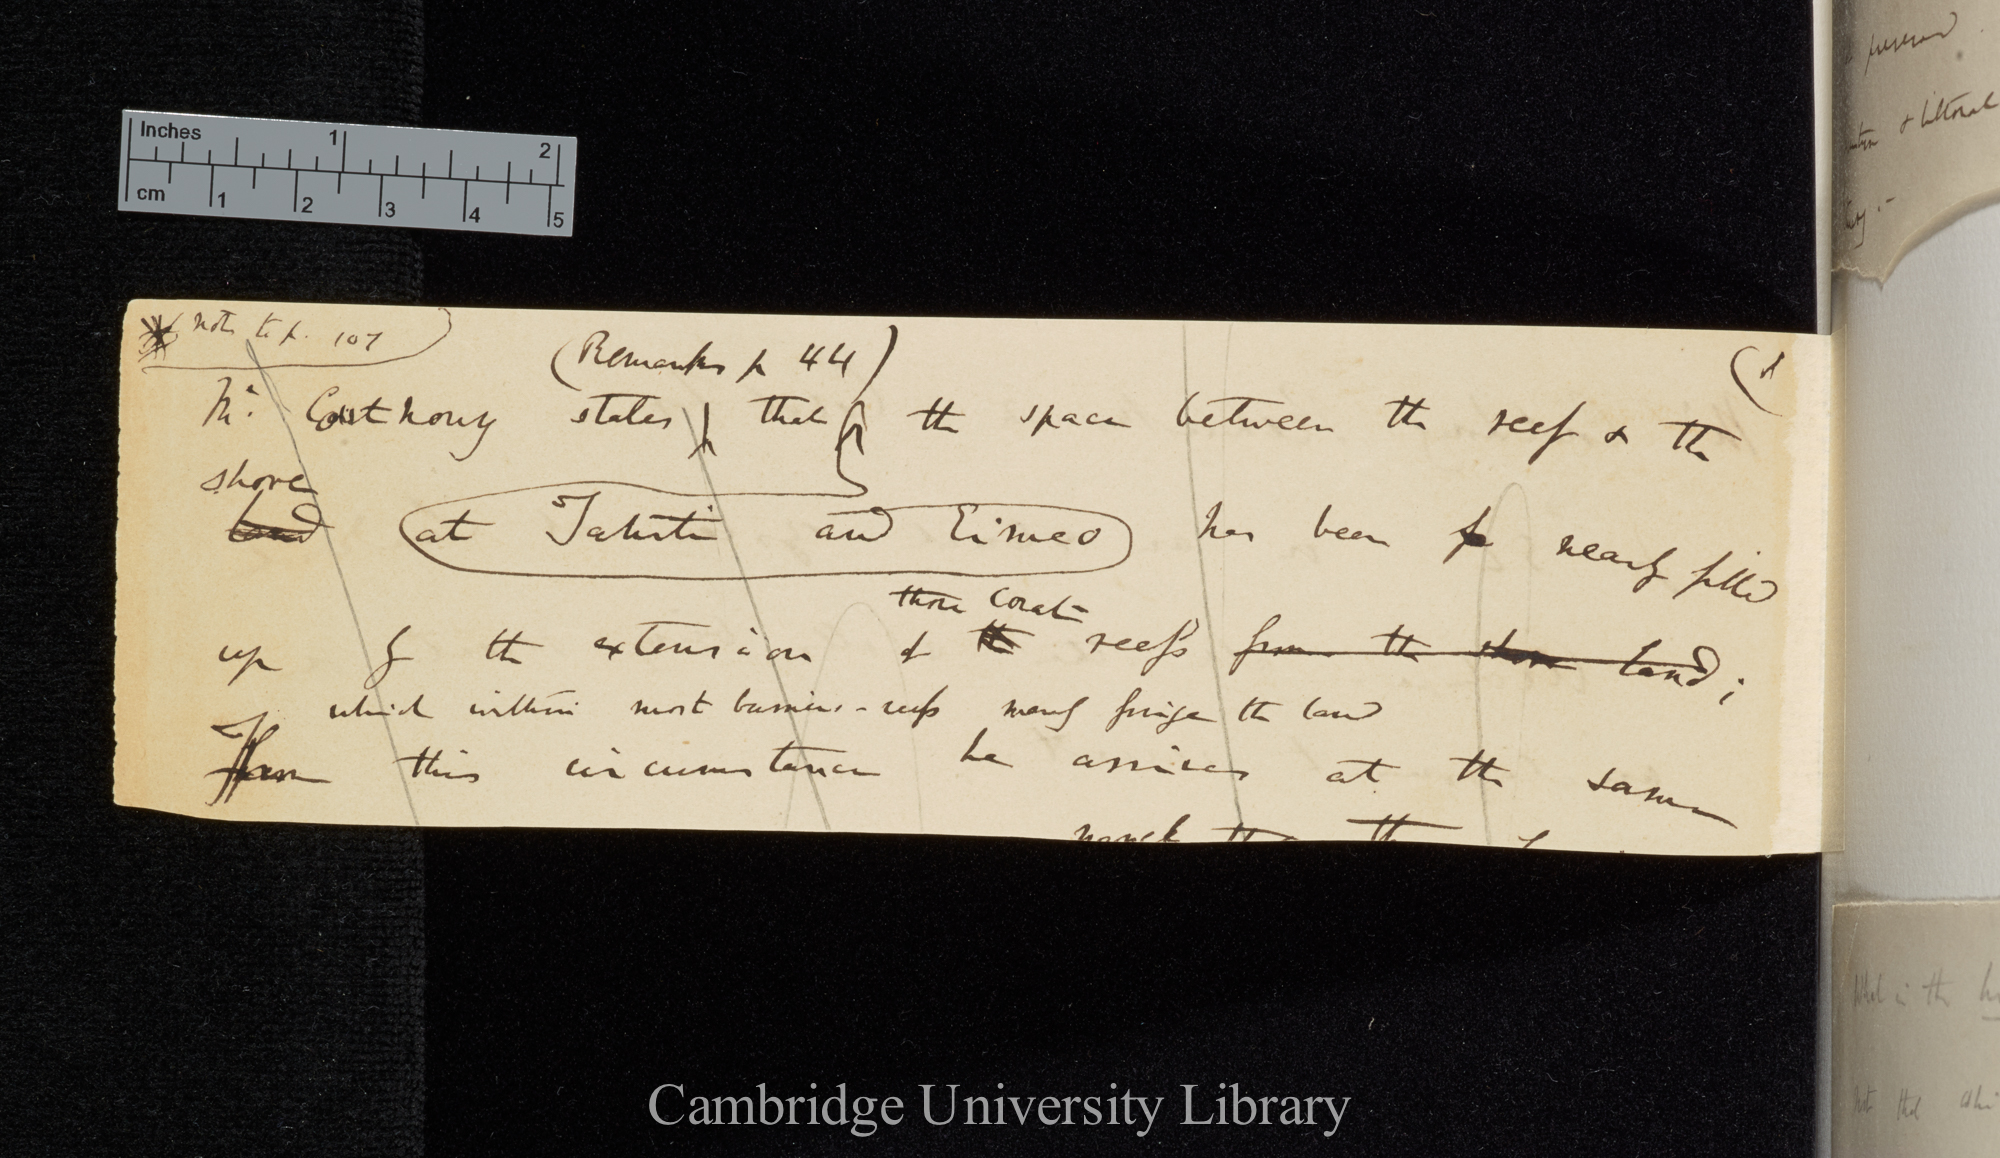 Inches 1 2
cm 1 2 3 4 5
* note to p. 107
(Remarks p 44)
Mr. Couthouy states, that the space between the reef & the
shore
land at Tahiti and Eimeo has been nearly filled
those coral-
up by the extension of the reefs from the shore land;
which within most barrier-reefs merely fringe the land
From this circumstance he arrives at the same
& littoral
What is the
Not that
Cambridge University Library